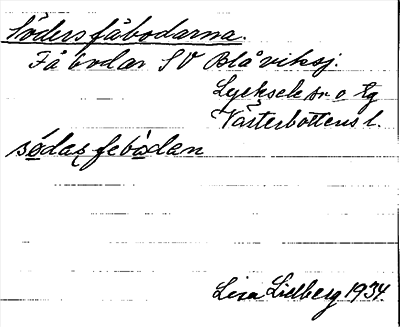 Södersfäbodarna.
Fäbodar SV Blåviksj.
Lycksele sn o tg
Västerbottens l.
södasfebodan
Lisa Lidberg 1934